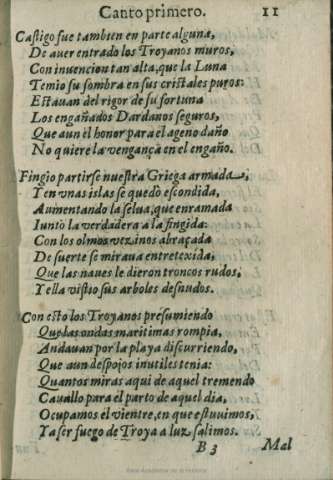 Canto primero. 11
Castigo fue tambien en parte alguna,
De auer entrado los Troyanos muros,
Con inuencion tan alta, que la Luna
Temio su sombra en sus cristales puros:
Estauan del rigor de su fortuna
Los engañados Dardanos seguros,
Que aun el honor para el ageno daño
No quiere la vengança en el engaño.
Fingio partirse nuestra Griega armada,
Y en vnas islas se quedò escondida,
Aumentando la selua, que enramada
Iuntò la verdadera a la fingida:
Con los olmos vezinos abraçada
De suerte se miraua entretexida,
Que las naues le dieron troncos rudos,
Y ella vistio sus arboles desnudos.
Con esto los Troyanos presumiendo
Que las ondas maritimas rompia,
Andauan por la playa discurriendo,
Que aun despojos inutiles tenia:
Quantos miras aqui de aquel tremendo
Cauallo para el parto de aquel dia,
Ocupamos el vientre, en que estuuimos,
Y a ser fuego de Troya a luz salimos.
B 3 Mal